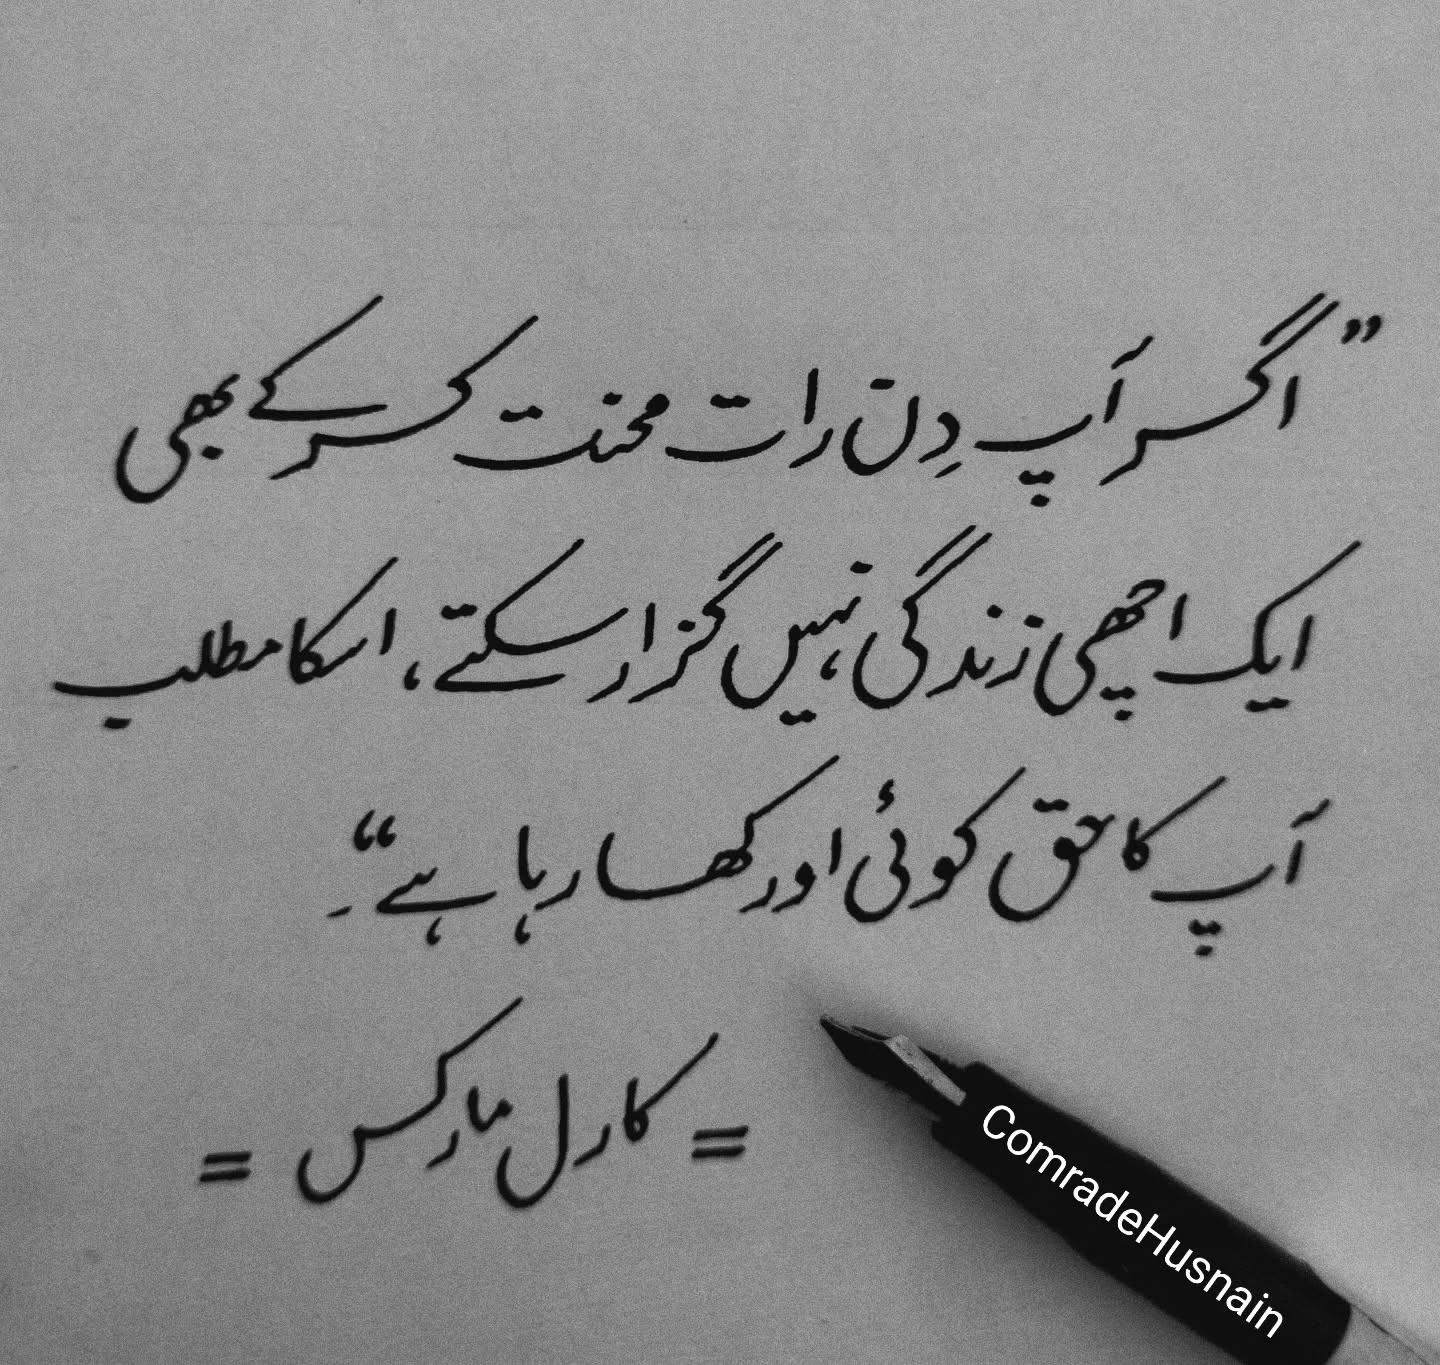 ”اگر آپ دِن رات محنت کر کے بھی
ایک اچھی زندگی نہیں گزار سکتے، اسکا مطلب
آپ کا حق کوئی اور کھا رہا ہے“۔
= کارل مارکس =
ComradeHusnain